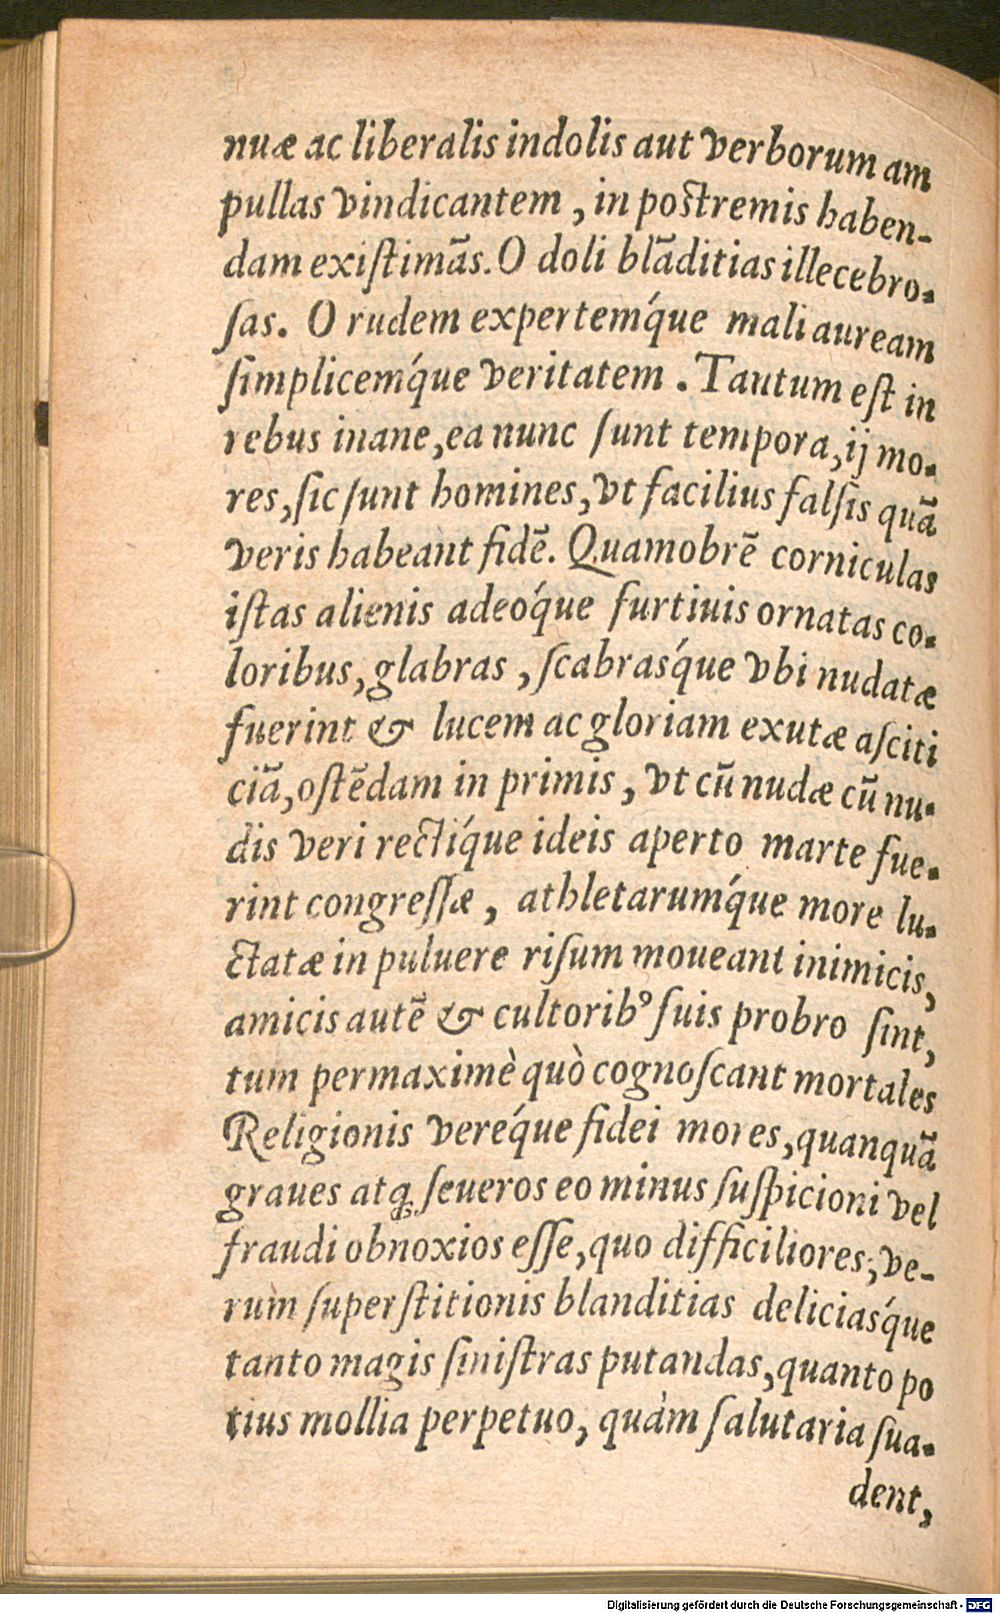 nuæ ac liberalis indolis aut verborum am
pullas vindicantem , in postremis haben-
dam existimãs. O doli blãditias illecebro-
ſas. O rudem expertemq́ue mali auream
ſimplicemq́ue veritatem . Tautum eſt in
rebus inane, ea nunc ſunt tempora, ij mo-
res, ſic ſunt homines, vt facilius falſis quã
veris habeant fidẽ. Quamobrẽ corniculas
iſtas alienis adeoq́ue furtiuis ornatas co-
loribus, glabras , ſcabrasq́ue vbi nudatæ
fuerint & lucem ac gloriam exutæ aſciti
ciã, oſtẽdam in primis , vt cũ nudæ cũ nu-
dis veri rectiq́ue ideis aperto marte fue-
rint congreſſæ , athletarumq́ue more lu-
ctatæ in puluere riſum moueant inimicis,
amicis autẽ & cultoribꝰ ſuis probro ſint,
tum permaximè quò cognoſcant mortales
Religionis vereq́ue fidei mores, quanquã
graues atq; ſeueros eo minus ſuſpicioni vel
fraudi obnoxios eſſe, quo difficiliores; ve-
rum ſuperſtitionis blanditias deliciasq́ue
tanto magis ſiniſtras putandas, quanto po
tius mollia perpetuo, quàm ſalutaria ſua-
dent,
Digitalisierung gefördert durch die Deutsche Forschungsgemeinschaft - DFG